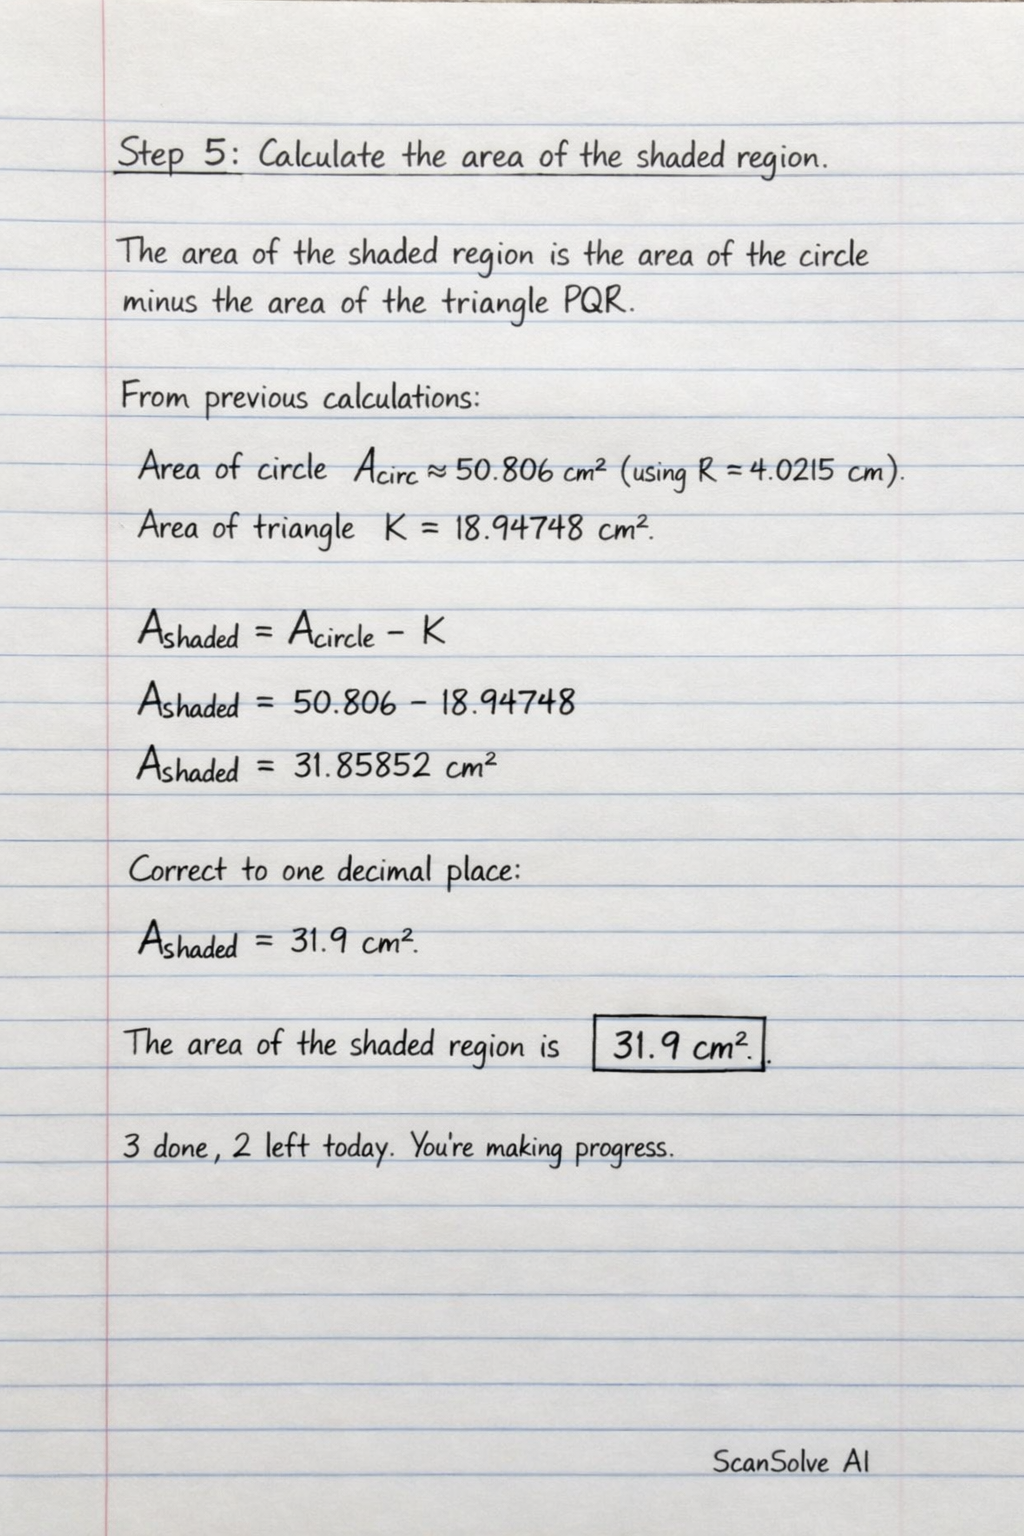 Step 5: Calculate the area of the shaded region.
The area of the shaded region is the area of the circle
minus the area of the triangle PQR.
From previous calculations:
Area of circle Acirc ≈ 50.806 cm² (using R = 4.0215 cm).
Area of triangle K = 18.94748 cm².
Ashaded = Acircle – K
Ashaded = 50.806 – 18.94748
Ashaded = 31.85852 cm²
Correct to one decimal place:
Ashaded = 31.9 cm².
The area of the shaded region is 31.9 cm². .
3 done, 2 left today. You're making progress.
ScanSolve AI